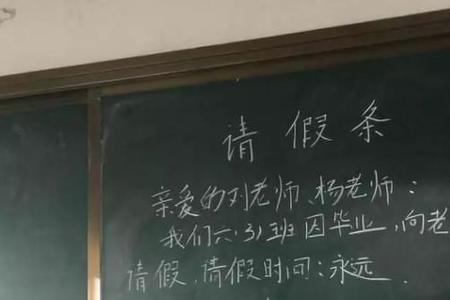 请假条
亲爱的刘老师、杨老师：
我们六·3)班因毕业，向老
请假，请假时间：永远